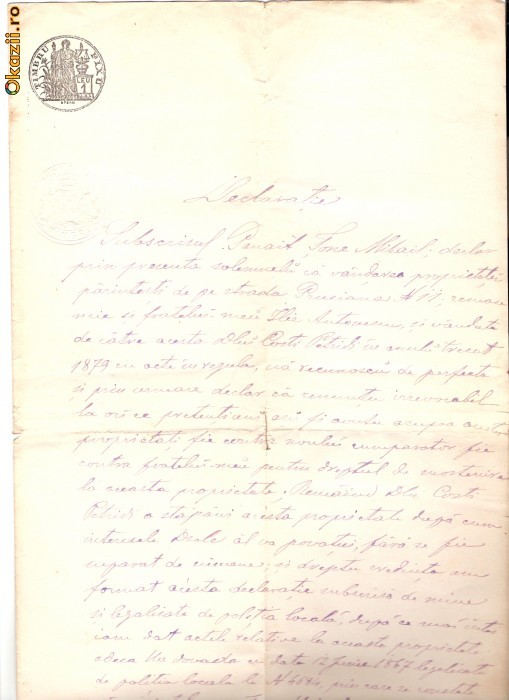 Okazii.ro
TIMBRU FIXU
1
Declarație
Subscrisul Panait Ione Mihail; declar
prin presenta solemnelu că vândarea proprietăței
părintești de pe strada Prusiana № 11, remase
mie și fratelui meu Ilie Antonescu, și vândute
de către acesta Dlui Costi Petridi în anulu trecut
1879 cu acte în regula, uă recunoscu de perfecte
și prin urmare declar că renunțu irevocabil
la ori ce pretentiuni aci fi avutu asupra acestei
proprietăți fie contra noului cumparator fie
contra fratelui meu pentru dreptul de moștenire
la aceasta proprietate. Remâind Dlu Costi
Petridi a stăpâni acesta proprietate după cum
interesele Dsale îl va povațui, fără se fie
suparat de nimene; și dreptu credință am
format acesta declarație subscrisă de mine
si legalisate de poliția locală, după ce mai întâi
iam dat actele relative la aceasta proprietate
adeca Una dovada cu data 12 Junie 1867 legalisata
de politia locala la № prin care se